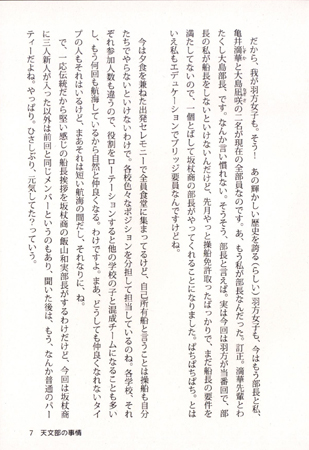 だから、我が羽方女子も、そう！　あの輝かしい歴史を誇る（らしい）羽方女子も、今はもう部長と私、
亀井満華と大島凪咲の二名が現在の全部員なのです。あ、もう私が部長なんだった。訂正。満華先輩とわ
たくし大島部長、です。なんか言い慣れない。そうそう、部長と言えば、実は今回は羽方が当番回で、部
長の私が船長をしないといけないんだけど、先月やっと操船免許取ったばっかりで、まだ船長の要件を
満たしてないので、一個とばして坂杖商の部長がやってくれることになりました。ぱちぱちぱち。とは
いえ私もエデュケーションでブリッジ要員なんですけどね。
今は夕食を兼ねた出発セレモニーで全員食堂に集まってるけど、自己所有船と言うことは操船も自分
たちでやらないといけないわけで。各校色々なポジションを分担して担当しているのね。各学校、それ
ぞれ参加人数も違うので、役割をローテーションすると他の学校の子と混成チームになることも多い
し、もう何回も航海しているから自然と仲良くなる。わけですよ。まあ、どうしても仲良くなれないタイ
プの人もそれはいるけど、まあそれは短い航海の間だし、それなりに、ね。
で、一応伝統だから堅い感じの船長挨拶を坂杖商の飯山和実部長がするわけだけど、今回は坂杖商
に三人新人が入った以外は前回と同じメンバーというのもあり、聞いた後は、もう、なんか普通のパー
ティーだよね。やっぱり。ひさしぶり、元気してた？っていう。
7　天文部の事情